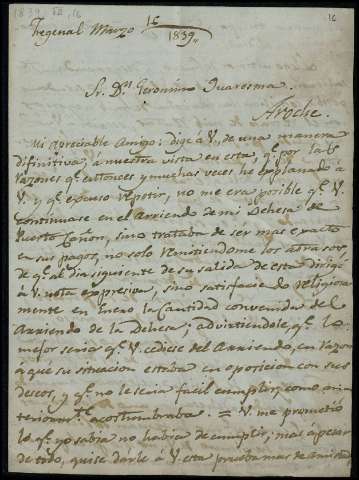 1839, III, 16
16
Fregenal Marzo 16/1839,,
Sr. Dn. Geronimo Quaresma.
Aroche.
Mi apreciable Amigo: dige á V,, de una manera
difinitiva, a nuestra vista en esta, qe. por las
razones qe. entonces y muchas veces he esplanado á
V. y qe. escuso repetir, no me era posible qe. V.
continuase en el Arriendo de mi Dehesa de
Puerto Cañon, sino trataba de ser mas exacto
en sus pagos, no solo remitiendome los atrasos,
de qe. al dia siguiente de su salida de esta dirigi
á V. nota expresiva, sino satisfacendo religiosa
mente en Enero la Cantidad convenida del
Arriendo de la Dehesa; advirtiendole, qe. lo
mejor seria qe. V. cediese del Arriendo, en razon
a que su situacion estaba en oposicion con sus
deseos, y qe. no le seria facil cumplir, como an
teriormte. acostumbraba. = V. me prometió
lo qe. yo sabia no habia de cumplir, mas á pesar
de todo, quise darle á V. esta prueba mas de amistad